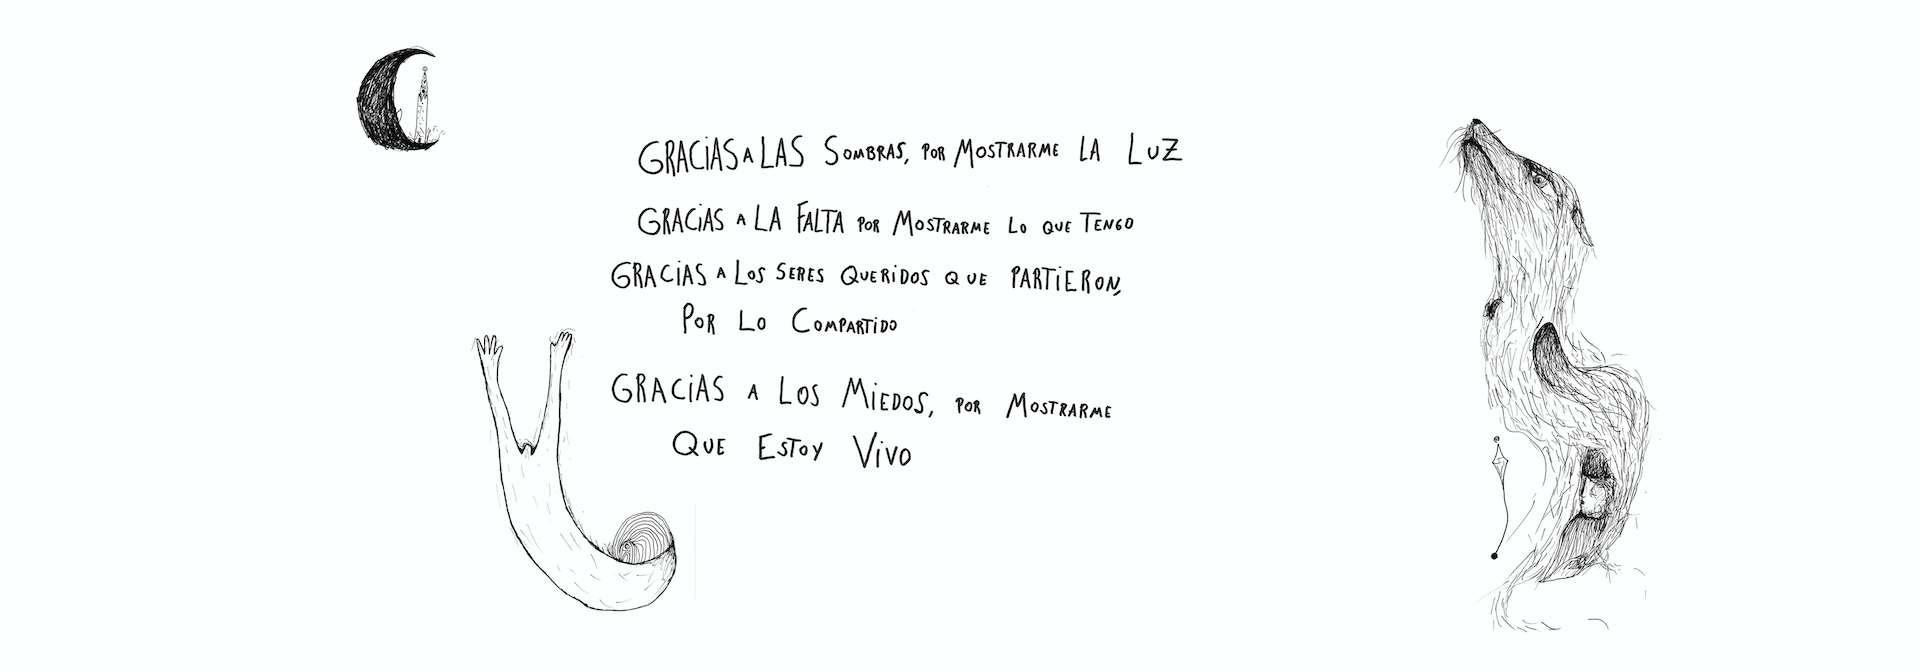 GRACiAS A LAS SOMBRAS, POR MOSTRARME LA LUZ
GRACiAS A LA FALTA POR MOSTRARME LO QUE TENGO
GRACiAS A LOS SERES QUERiDOS QUE PARTiERON,
POR LO COMPARTiDO
GRACiAS A LOS MiEDOS, POR MOSTRARME
QUE ESTOY ViVO